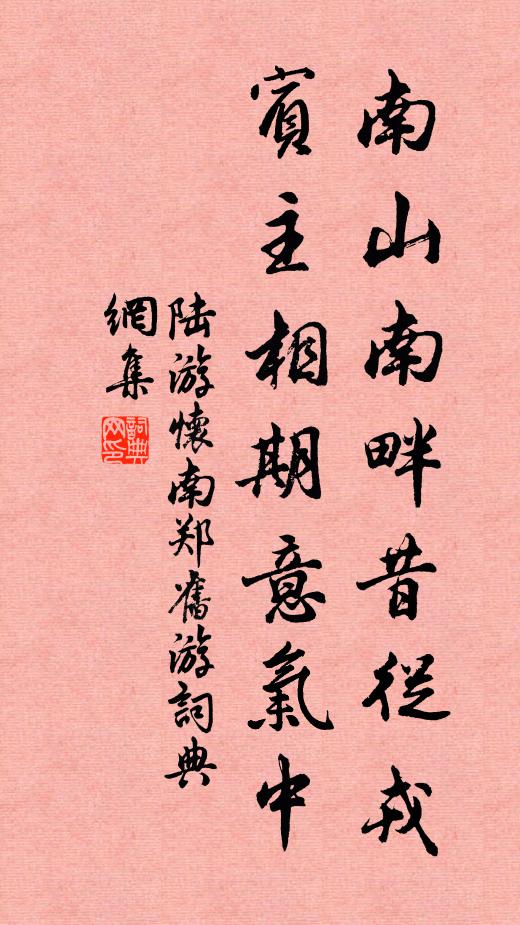 南山南畔昔從戎
賓主相期意氣中
陆游懷南郑舊游詞典
網集
詞典网印